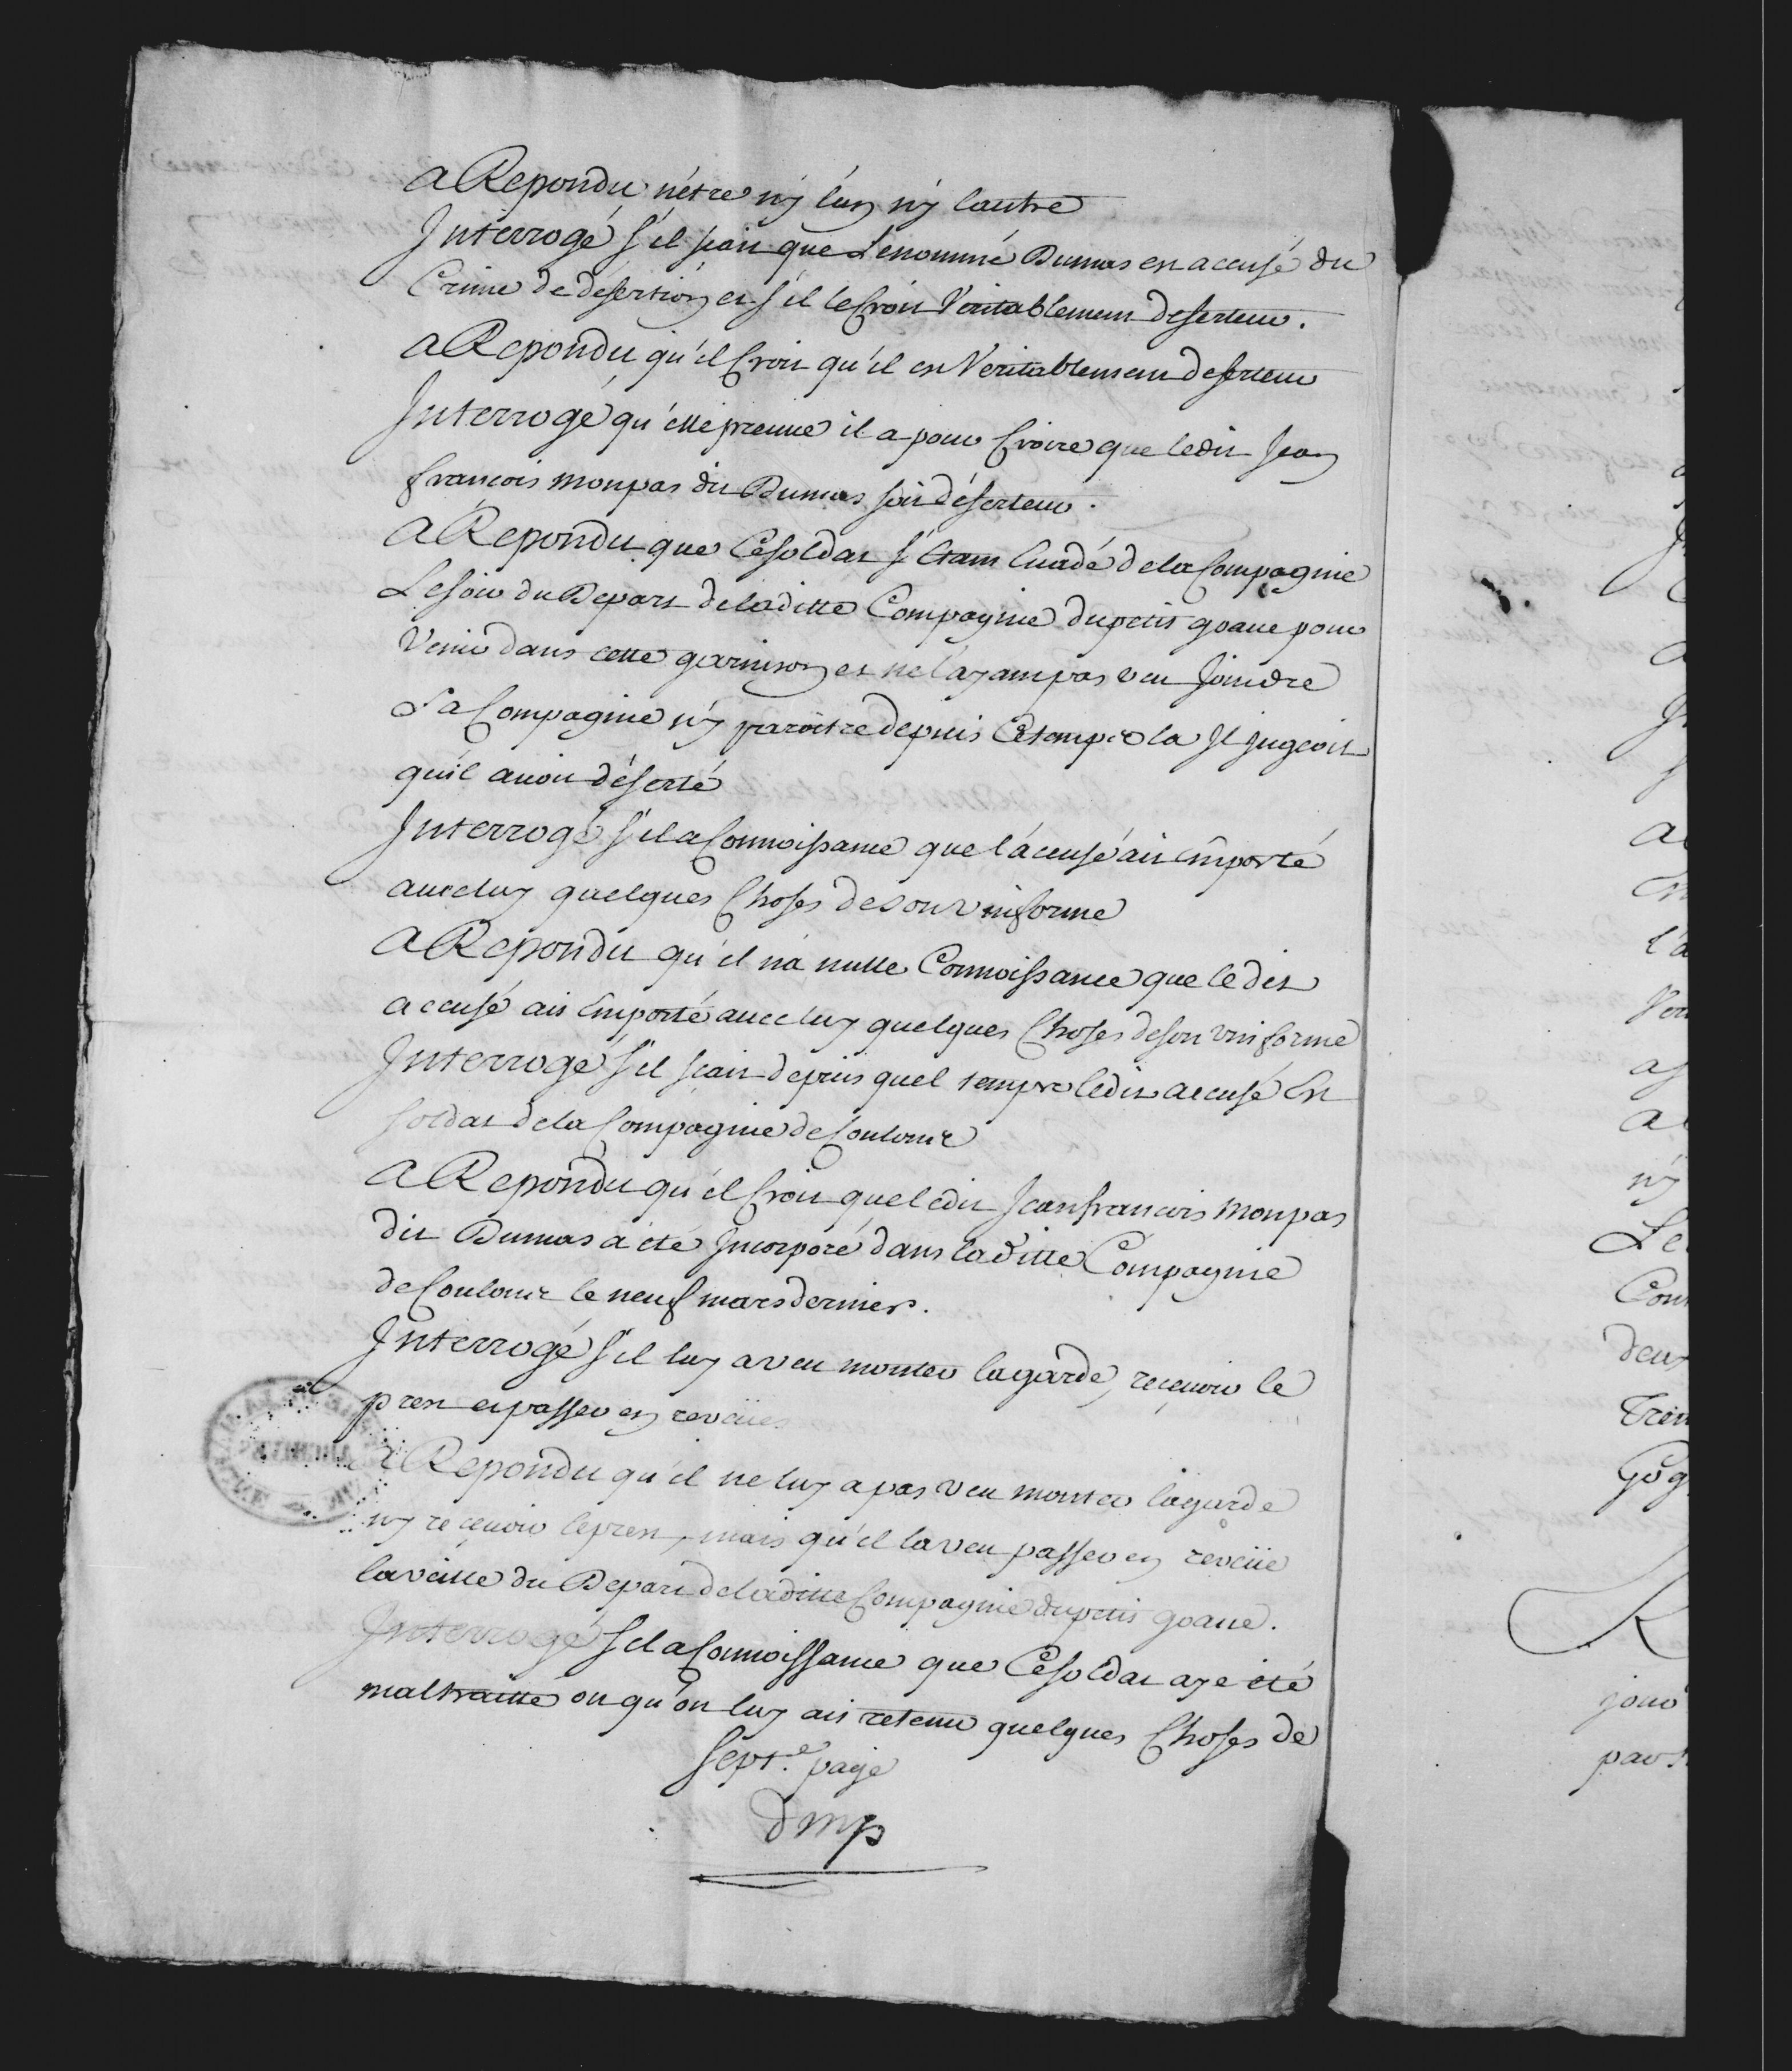 a Repondu nétre ny lun ny lautre
Interrogé s'il scait que Lenommé Dumas est accusé du
Crime de desertion et s'il le Croit Veritablement deserteur.
a Repondu qu'il Croit qu'il est Veritablement deserteur
Interrogé qu'elle preuve il a pour Croire que ledit Jean
françois monpas dit Dumas soit déserteur.
a Repondu que Ce soldat s'Etant Evadé de la Compagnie
Le soir du Depart de laditte Compagnie du petit goave pour
Venir dans cette garnison et ne l'ayant pas veu Joindre
La Compagnie n'y paroitre depuis Ce temps la Il jugeoit
qu'il avoit déserté
Interrogé s'il a Connoissance que l'acusé ait Emporté
avec luy quelques Choses de son uniforme
a Repondu qu'il n'a nulle Connoissance que ledit
accusé ait Emporté avec luy quelques Choses de son uniforme
Interrogé s'il scait depuis quel temps ledit accusé Est
soldat de la Compagnie de Coulome
a Repondu qu'il Croit que ledit Jean françois monpas
dit Dumas a été Incorporé dans laditte Compagnie
de Coulome le neuf mars dernier.
Interrogé s'il luy a veu monter la garde, recevoir le
prest et passer en reveüe
a Repondu qu'il ne luy a pas veu monter la garde
ny recevoir le prest, mais qu'il la veu passer en reveüe
la veille du Depart de laditte Compagnie du petit goave.
Interrogé s'il a Connoissance que Ce soldat aye été
maltraitté ou qu'on luy ait retenu quelques Choses de
sept.e page
Dmp